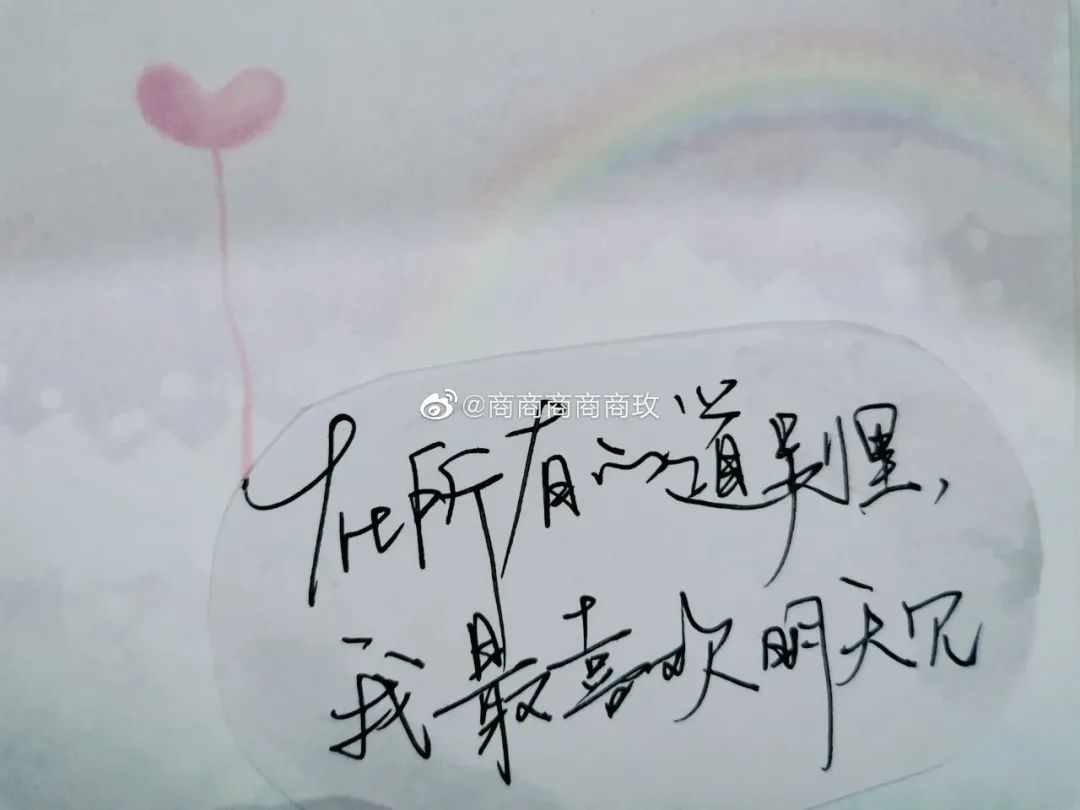 @商商商商商玫
在所有的道别里,
我最喜欢明天见